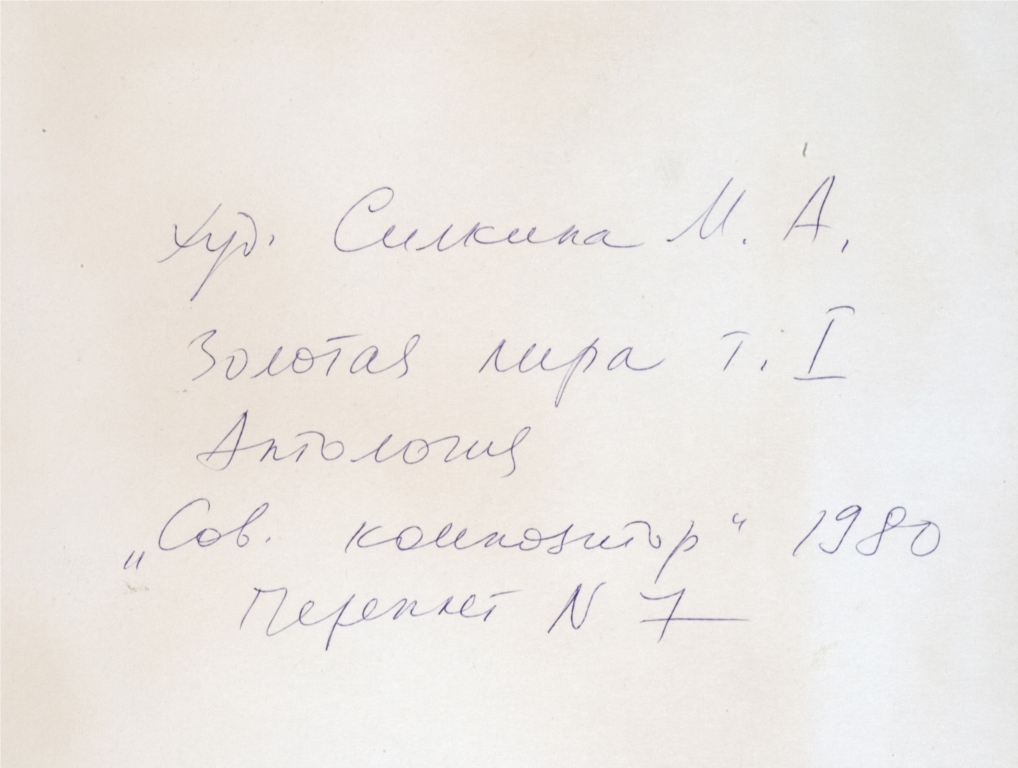 худ. Силкина М. А.
Золотая лира т. I
Антология
„Сов. композитор“ 1980
Переплет N 7